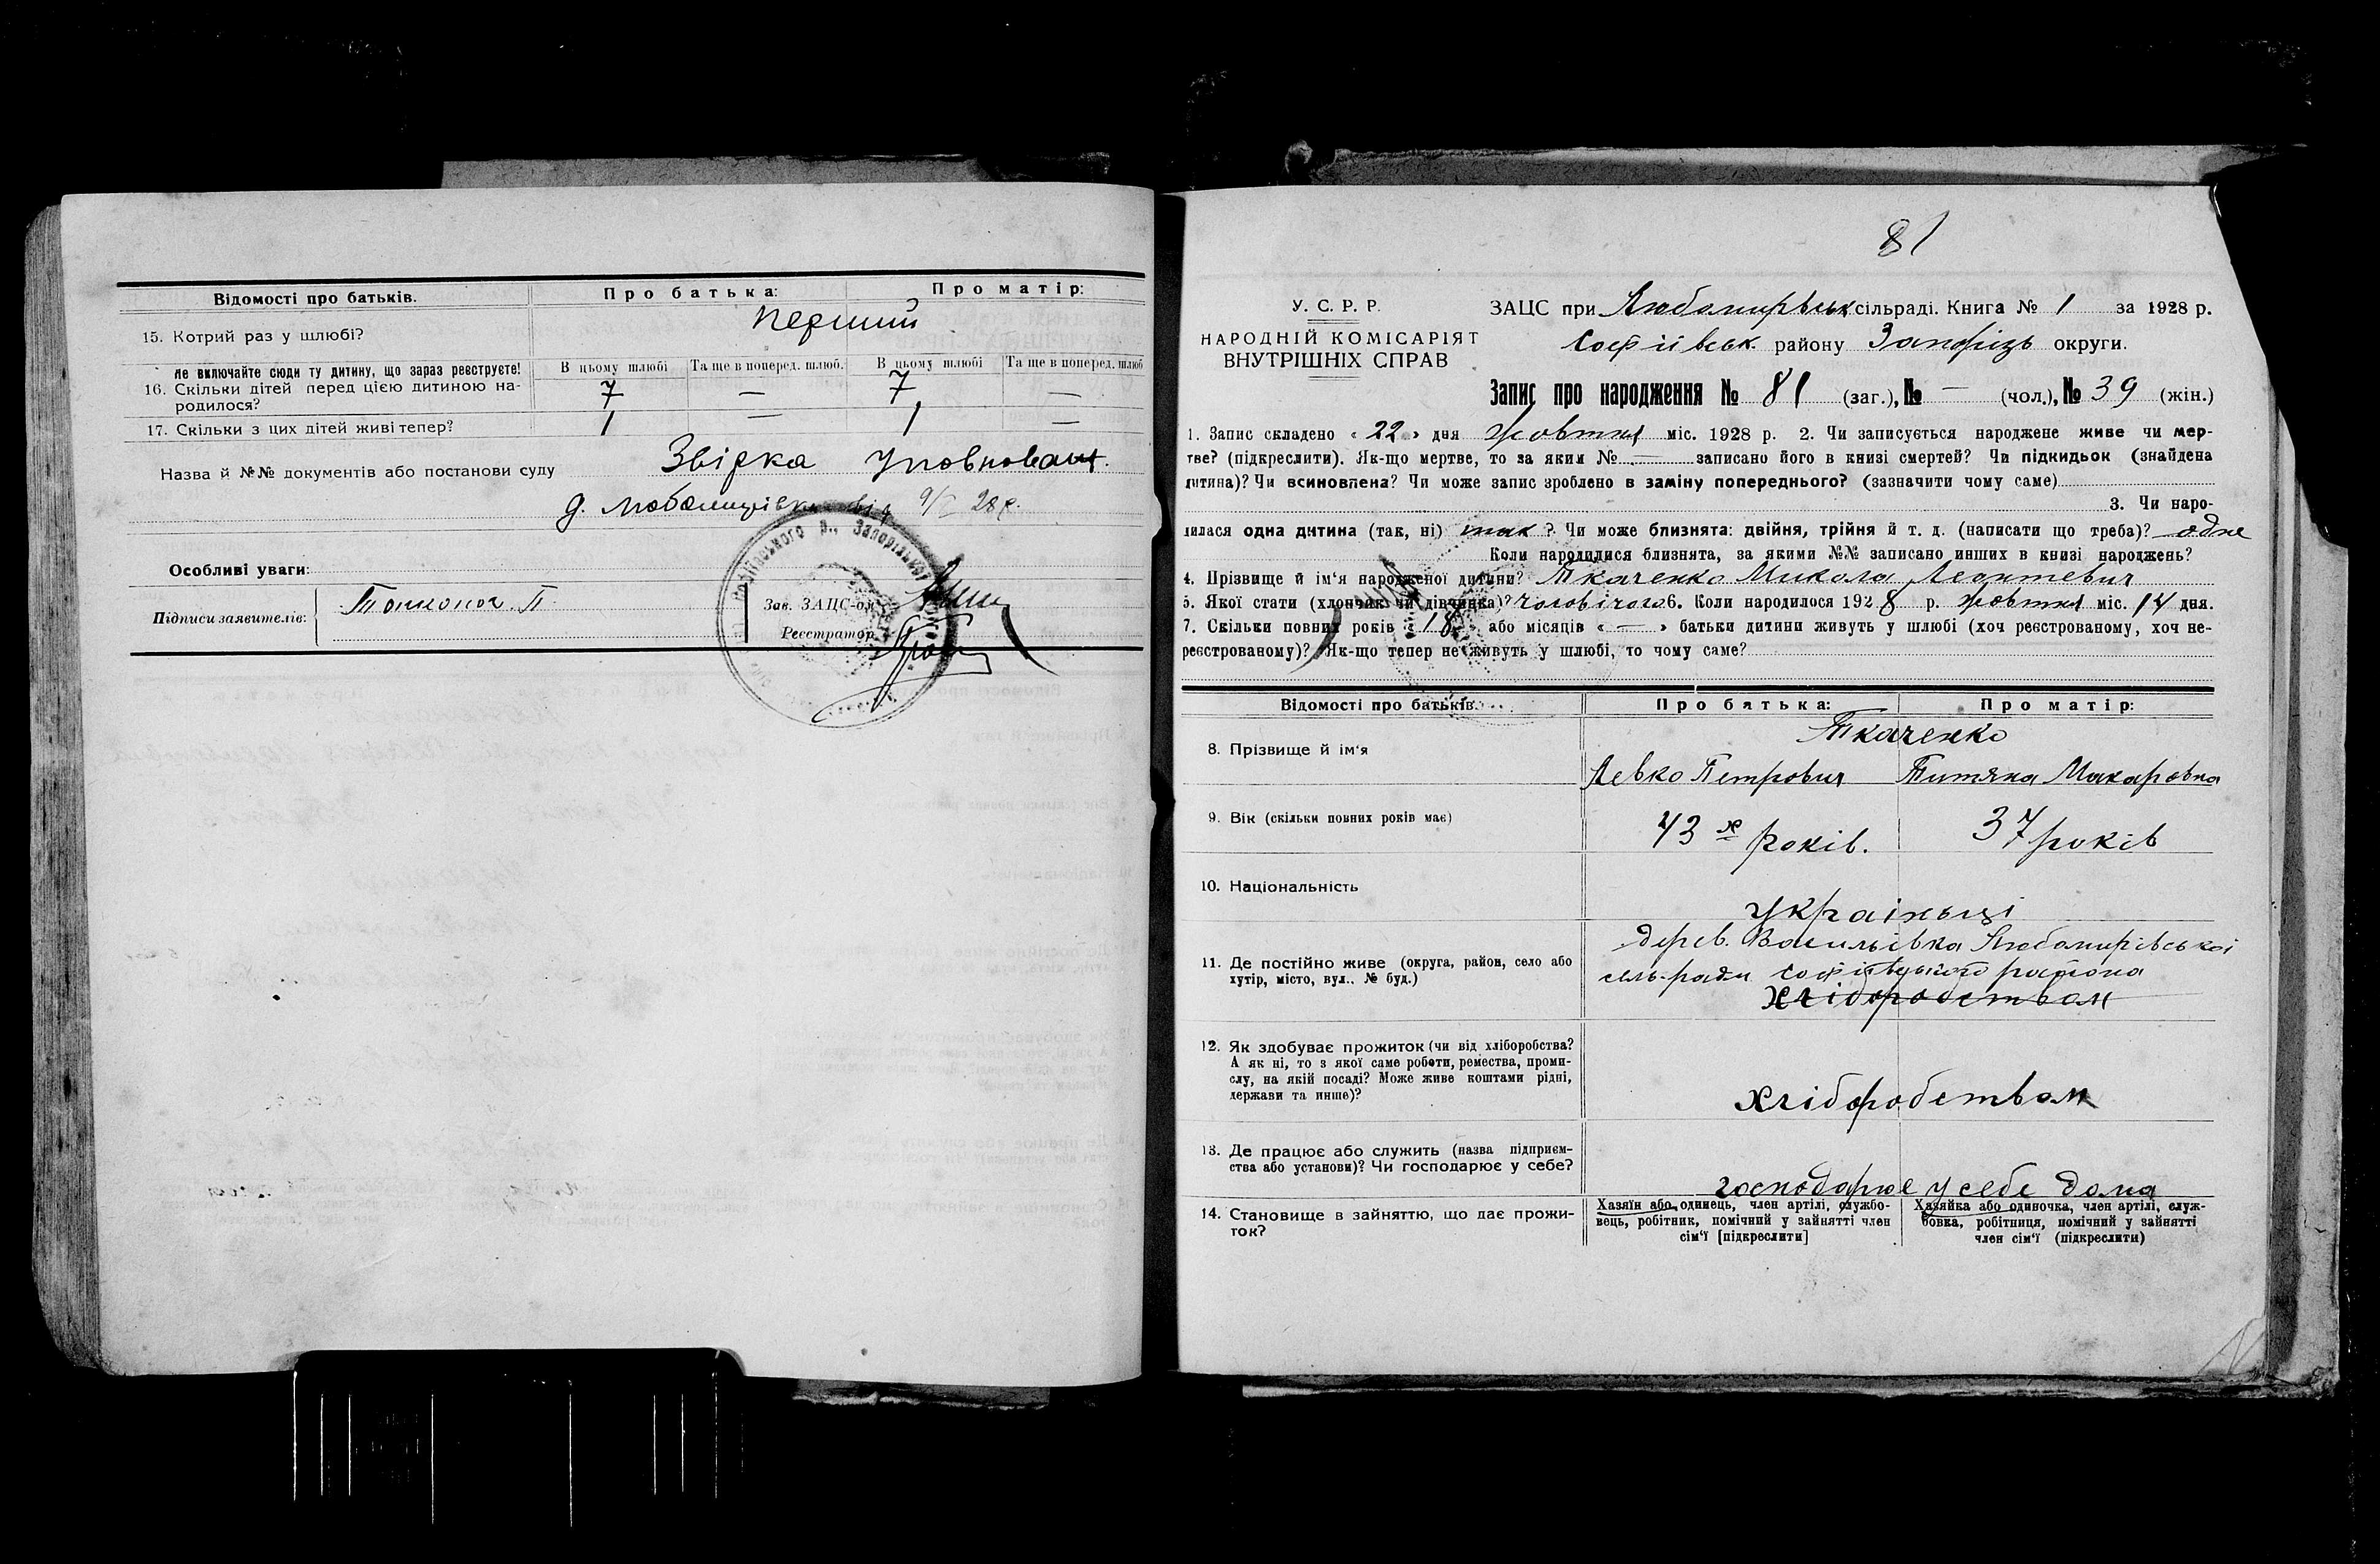 Відомості про батьків. Про батька: Про матір:
15. Котрий раз у шлюбі? перший
Не включайте сюди ту дитину, що зараз реєструєте! В цьому шлюбі Та ще в поперед. шлюб. В цьому шлюбі Та ще в поперед. шлюб
16. Скільки дітей перед цією дитиною на- 7 — 7 —
родилося?
17. Скільки з цих дітей живі тепер? 1 — 1 —
Назва й №№ документів або постанови суду Звірка уповноваж.
д. Любомирівки від 9/X 28 р.
Особливі уваги:
Підписи заявителів:
Зав. ЗАЦС-ом
Реєстратор
81
У. С. Р. Р. ЗАЦС при Любомирівськ сільраді. Книга № 1 за 1928 р.
НАРОДНІЙ КОМІСАРІЯТ Софіївськ. району Запоріз округи.
ВНУТРІШНІХ СПРАВ
Запис про народження № 81 (заг.), № — (чол.), № 39 (жін.)
1. Запис складено « 22 » дня жовтня міс. 1928 р. 2. Чи записується народжене живе чи мер-
тве? (підкреслити). Як-що мертве, то за яким № — записано його в книзі смертей? Чи підкидьок (знайдена
дитина)? Чи всиновлена? Чи може запис зроблено в заміну попереднього? (зазначити чому саме)
3. Чи наро-
дилася одна дитина (так, ні) так ? Чи може близнята: двійня, трійня й т. д. (написати що треба)? одне
Коли народилися близнята, за якими №№ записано инших в книзі народжень?
4. Прізвище й ім'я народженої дитини? Ткаченко Микола Леонтевич
5. Якої стати (хлопчик чи дівчинка)? чоловічого 6. Коли народилося 1928 р. жовтня міс. 14 дня.
7. Скільки повних років « 18 » або місяців « — » батьки дитини живуть у шлюбі (хоч реєстрованому, хоч не-
реєстрованому)? Як-що тепер не живуть у шлюбі, то чому саме?
Відомості про батьків. Про батька: Про матір:
Ткаченко
8. Прізвище й ім'я
Левко Петрович Титяна Макаровна
9. Вік (скільки повних років має) 43 х років. 37 років
10. Національність
українці
дерев. Васильівка Любомирівської
11. Де постійно живе (округа, район, село або
хутір, місто, вул.. № буд.) сель-ради Софіївського района
хліборобством
12. Як здобуває прожиток (чи від хліборобства?
А як ні, то з якої саме роботи, ремества, проми-
слу, на якій посаді? Може живе коштами рідні,
держави та инше)? хліборобством
13. Де працює або служить (назва підприєм-
ства або установи)? Чи господарює у себе?
господарює у себе дома
14. Становище в зайняттю, що дає прожи- Хазяїн або одинець, член артілі, службо- Хазяйка або одиночка, член артілі, служ-
ток? вець, робітник, помічний у зайнятті член бовка, робітниця, помічний у зайнятті
сім'ї [підкреслити] член сім'ї (підкреслити)